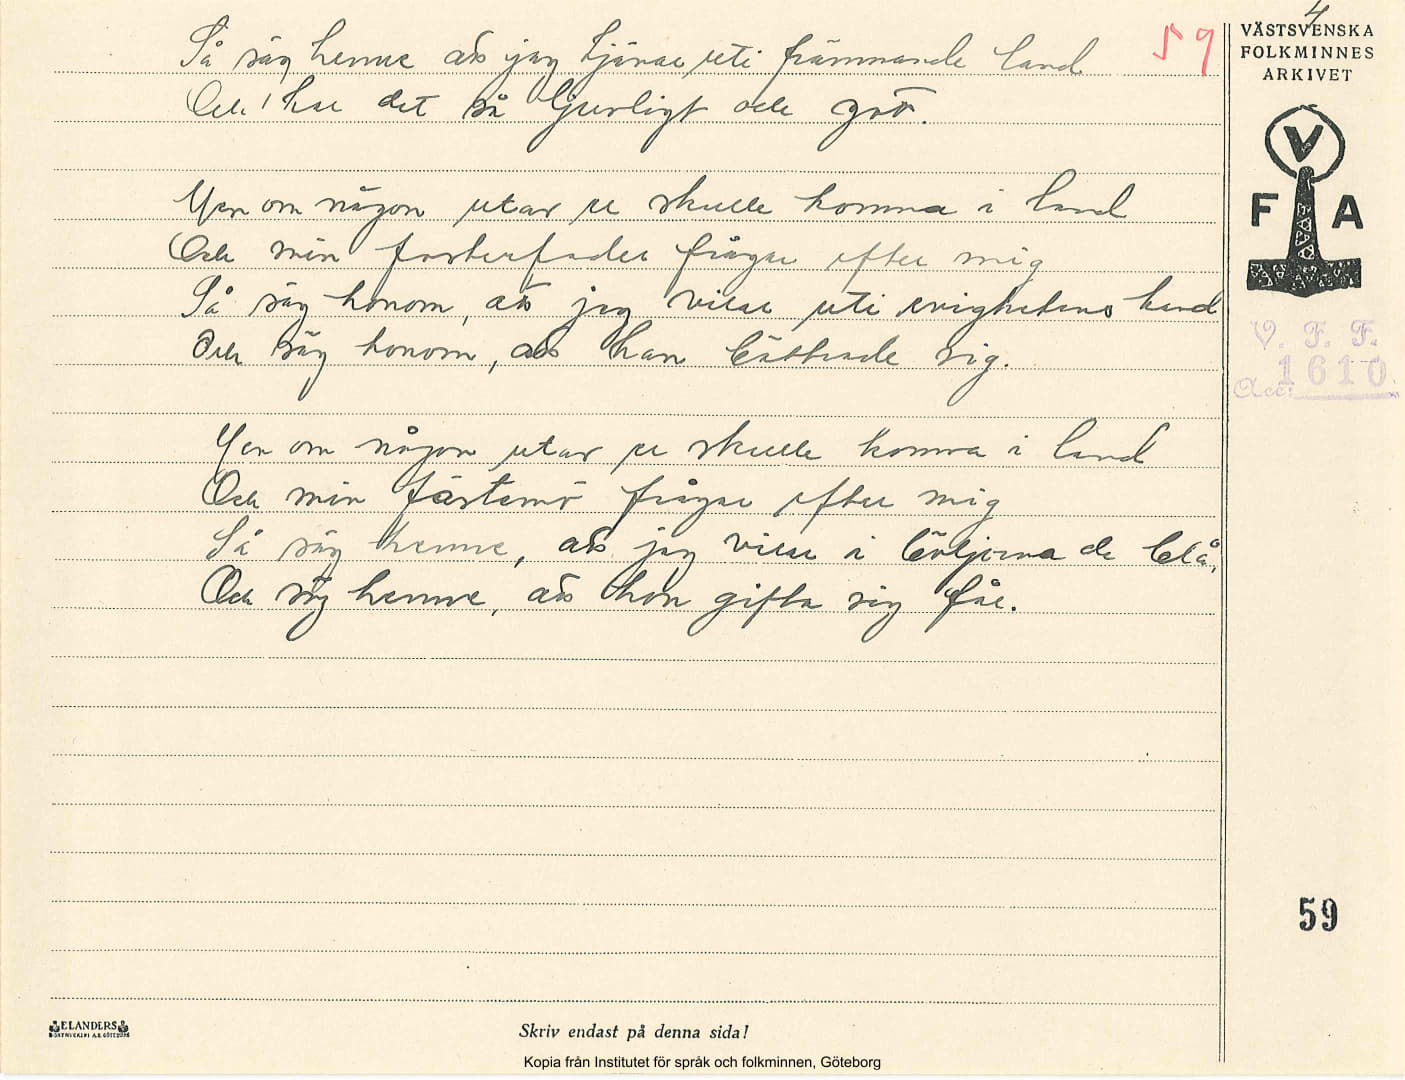 4
59
VÄSTSVENSKA
FOLKMINNES
ARKIVET
Så säg henne att jag tjänar uti främmande land
Och har det så ljuvligt och gott.
V
F A
Men om någon utav er skulle komma i land
Och min fosterfader frågar efter mig
Så säg honom, att jag vilar uti evighetens land
Och säg honom, att han bättrade sig.
V. F. F.
Acc: 1610
Men om någon utav er skulle komma i land
Och min fästemö frågar efter mig
Så säg henne, att jag vilar i böljorna de blå,
Och säg henne, att hon gifta sig får.
59
ELANDERS
Skriv endast på denna sida!
Kopia från Institutet för språk och folkminnen, Göteborg